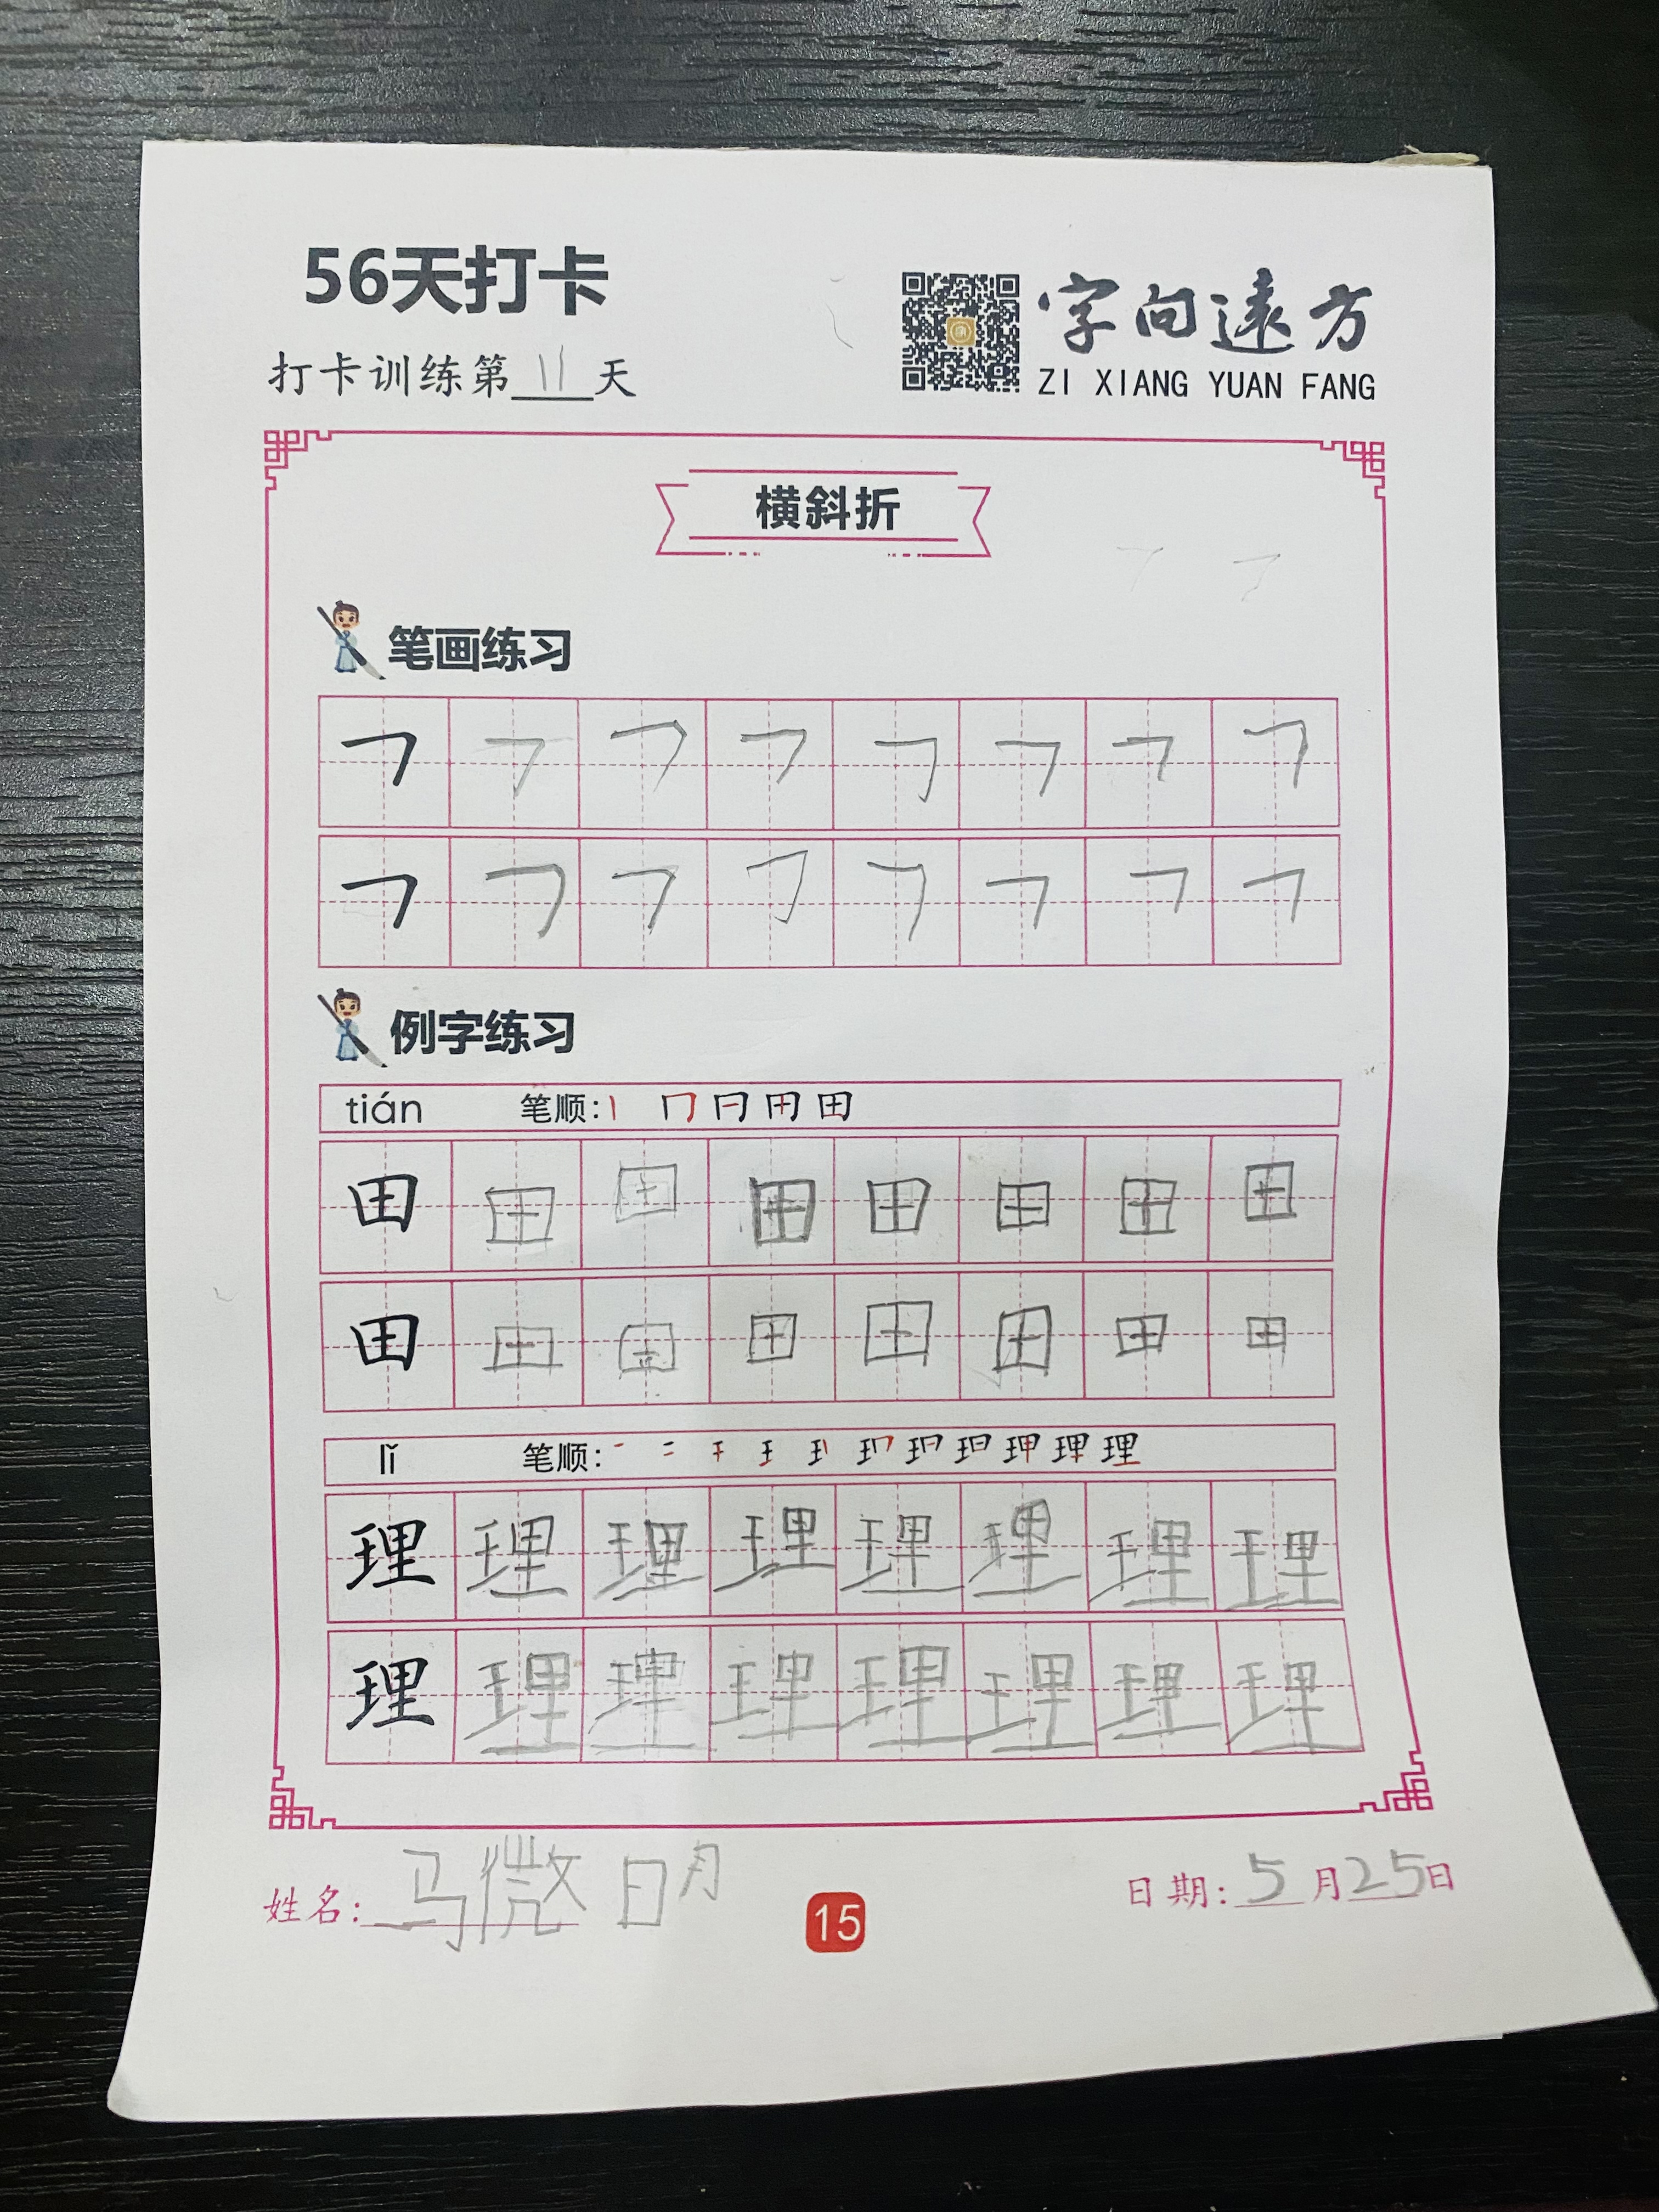 56天打卡
打卡训练第11天
字向遠方
ZI XIANG YUAN FANG
横斜折
笔画练习
㇇ ㇇ ㇇ ㇇ ㇇ ㇇ ㇇ ㇇
㇇ ㇇ ㇇ ㇇ ㇇ ㇇ ㇇ ㇇
例字练习
tián 笔顺:
田 田 田 田 田 田 田 田
田 田 田 田 田 田 田 田
lǐ 笔顺:
理 理 理 理 理 理 理 理
理 理 理 理 理 理 理 理
姓名: 马微明
15
日期: 5月25日